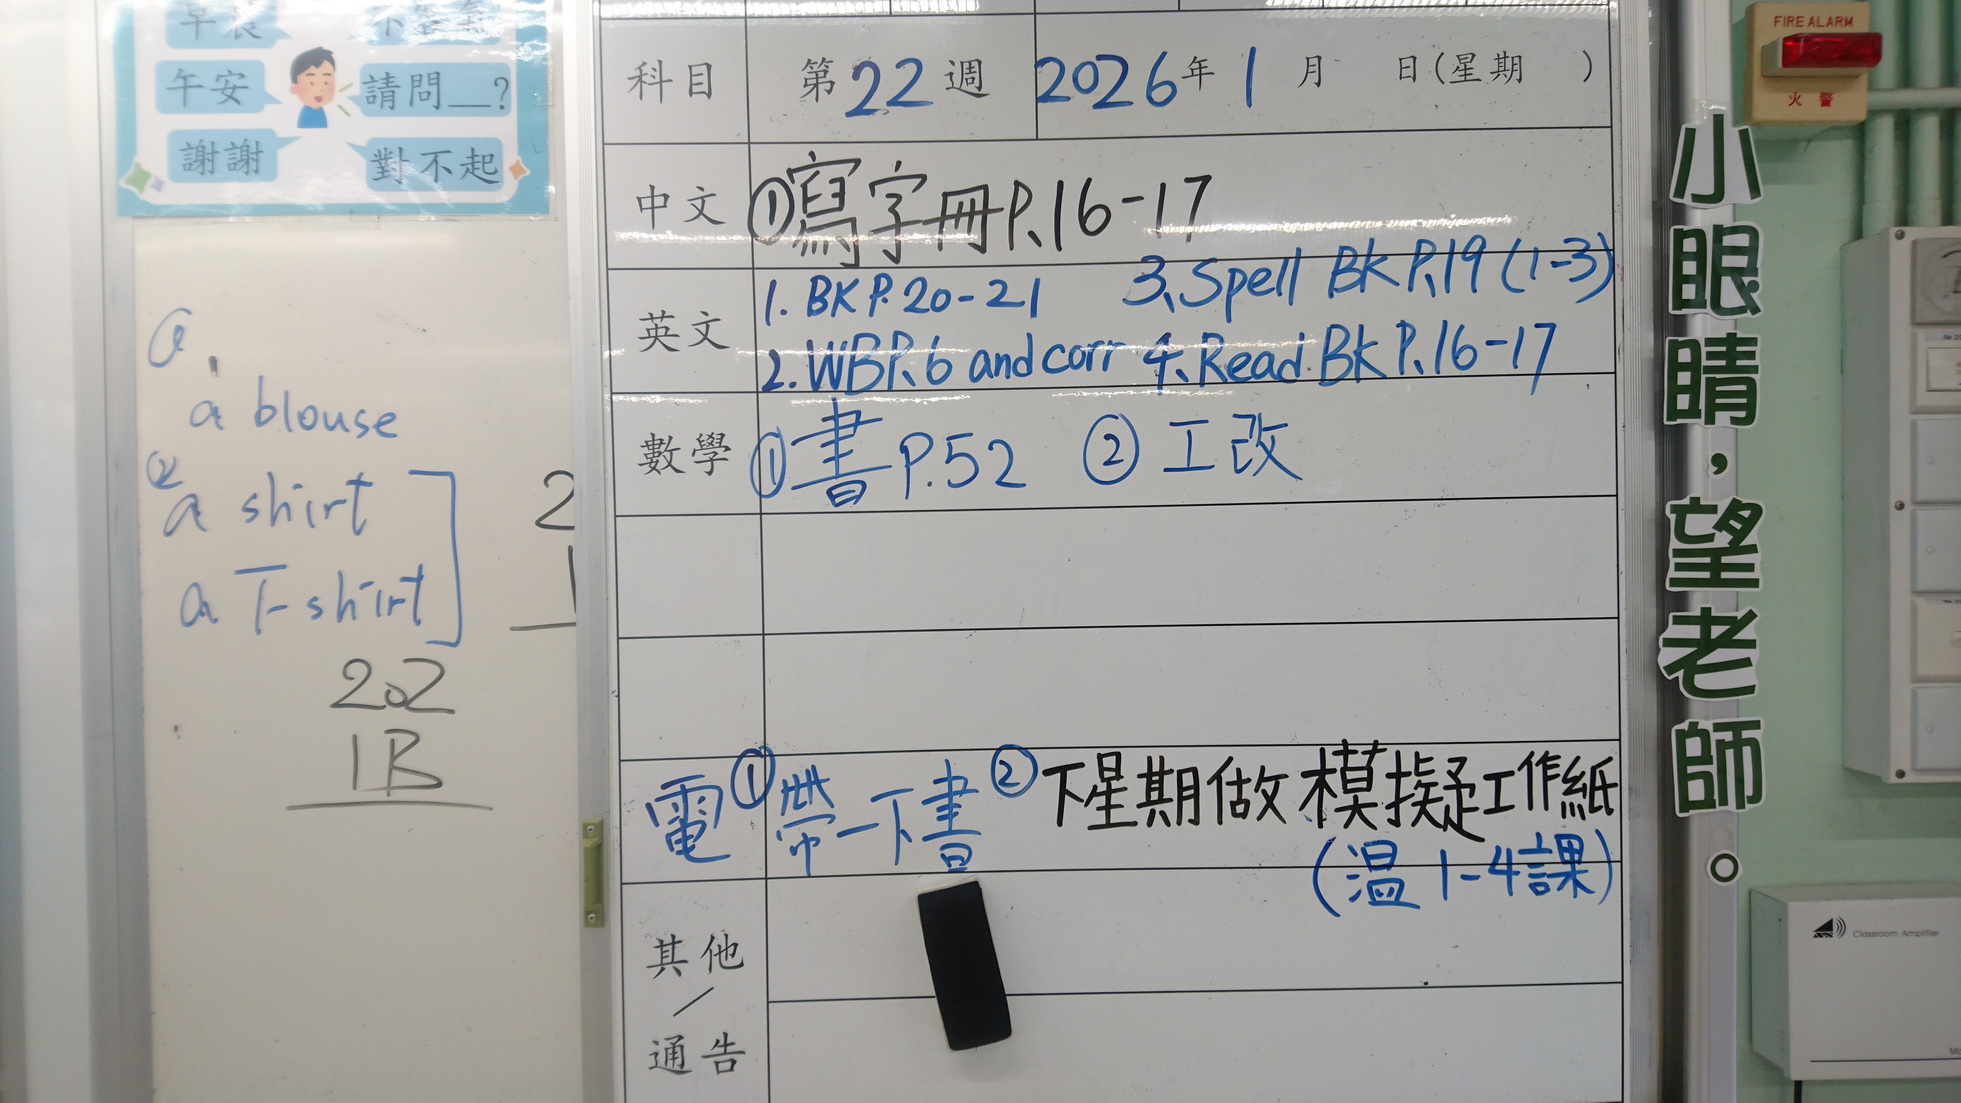 早晨
午安
請問__?
謝謝
對不起
a blouse
② a shirt
a T-shirt
202
1B
2
1
科目 第22週 2026年1月 日(星期 )
中文 ①寫字冊P.16-17
英文 1. BK P.20-21 3. Spell BK P.19 (1-3)
2. WB P.6 and corr 4. Read BK P.16-17
數學 ①書P.52 ②工改
電 ①帶一下書 ②下星期做模擬工作紙
(溫1-4課)
其他
/
通告
小眼睛，望老師。
FIRE ALARM
火警
Classroom Amplifier